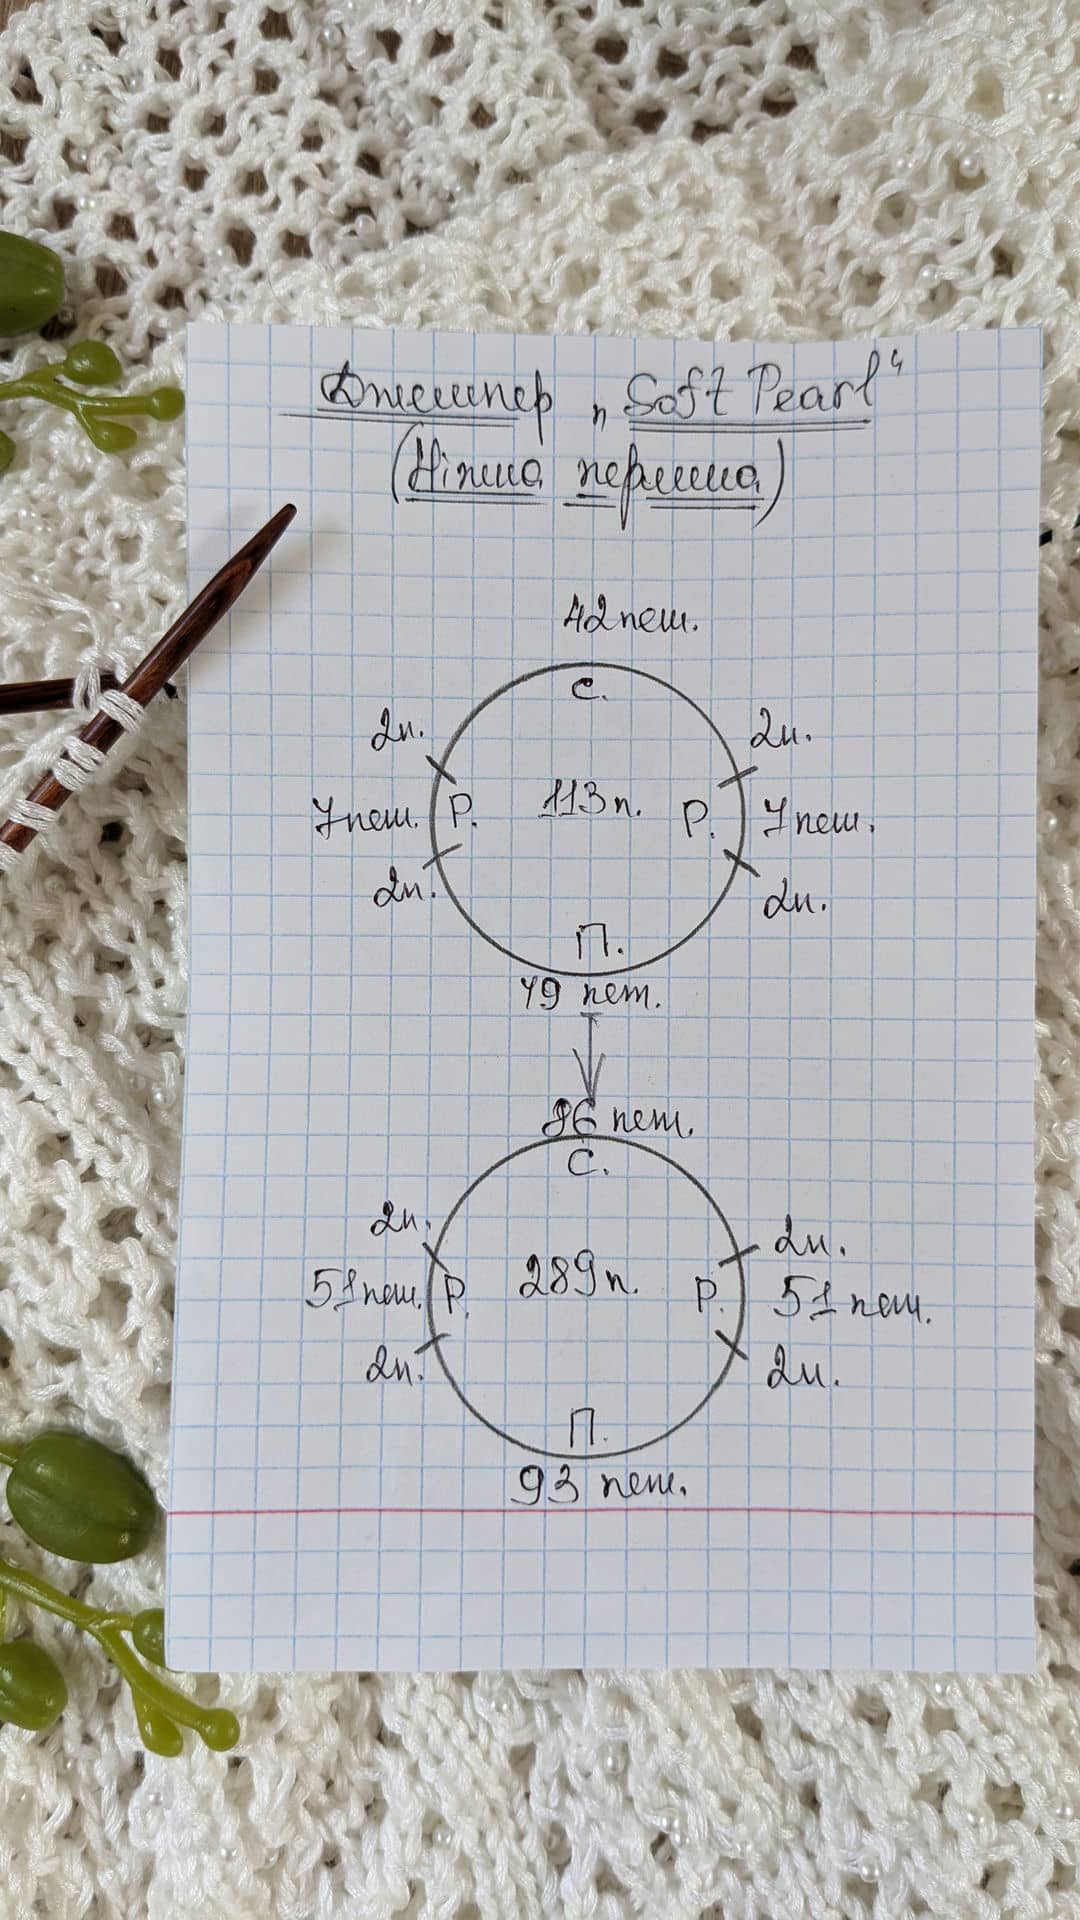 Джемпер „Soft Pearl“
(Ніжна перлина)
42 пет.
С.
2п. 2п.
7 пет. Р. 113 п. Р. 7 пет.
2п. 2п.
П.
49 пет.
86 пет.
С.
2п. 2п.
51 пет. Р. 289 п. Р. 51 пет.
2п. 2п.
П.
93 пет.